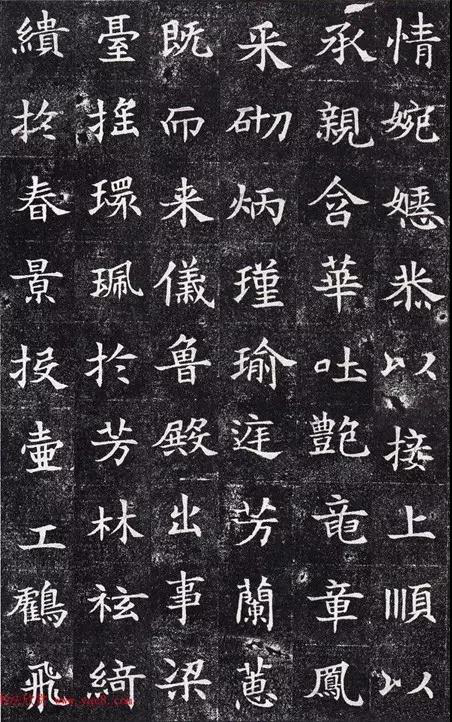 情婉嫕恭以接上順以
承親含華吐艷竜章鳳
采砌炳瑾瑜庭芳蘭蕙
既而来儀魯殿出事梁
臺摇環珮於芳林袨綺
繢於春景投壷工鶴飛